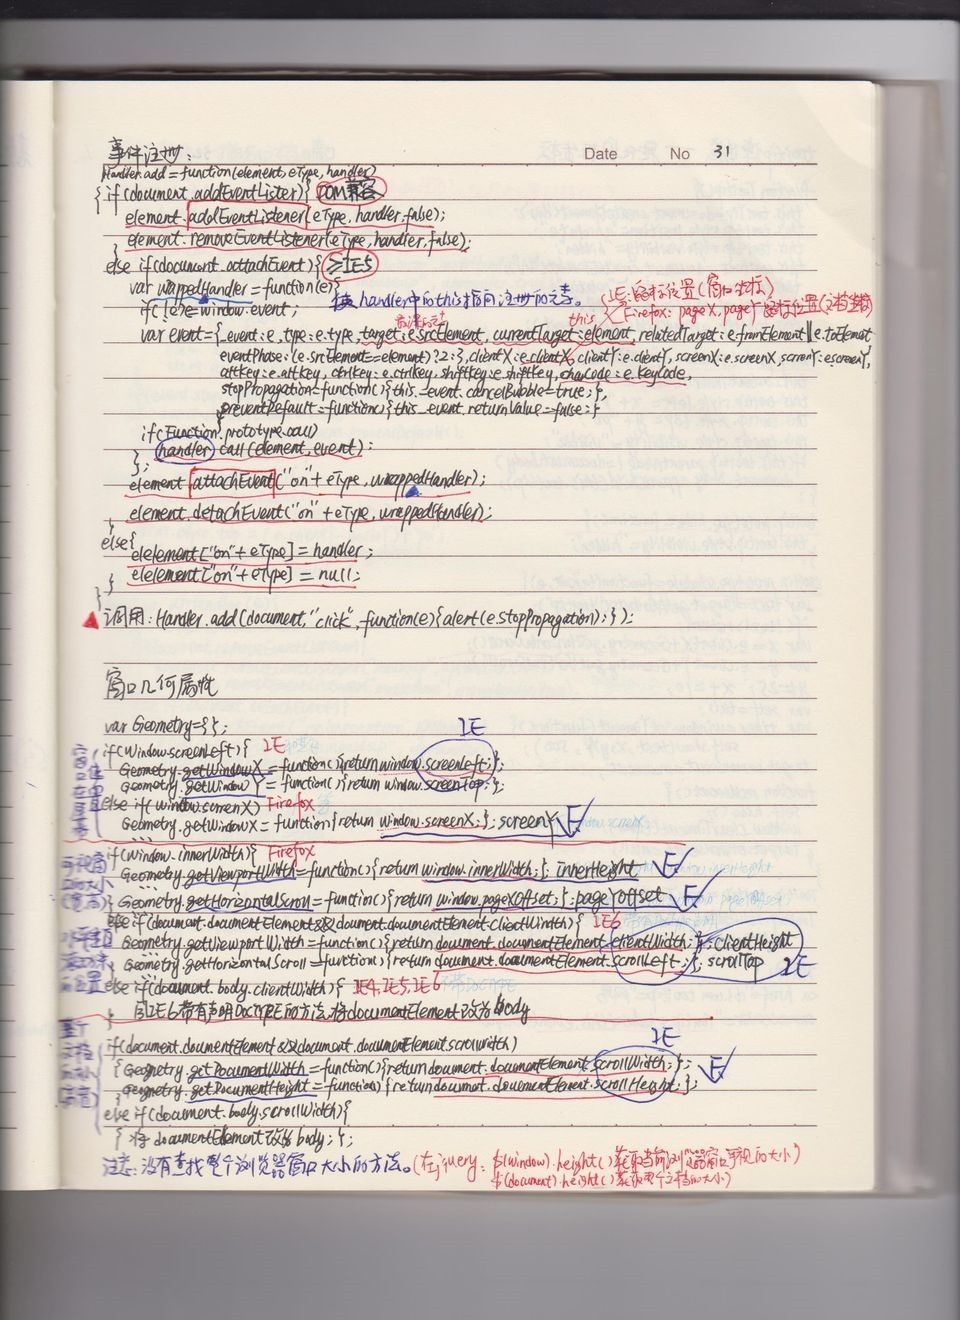 事件注册:
Date No 31
Handler.add=function(element,eType,handler)
{ if(document.addEventLister){ DOM兼容
element.addEventListener(eType,handler,false);
element.removeEventListener(eType,handler,false);
}
else if(document.attachEvent){ ≥IE5
var wrappedHandler=function(e){
使handler中的this指向注册的元素。
if(!e)e=window.event;
IE:鼠标位置(窗口坐标)
this Firefox: pageX, pageY 鼠标位置(文档坐标)
var event={_event:e,type:e.type,target:e.srcElement,currentTarget:element,relatedTarget:e.fromElement||e.toElement
eventPhase:(e.srcElement==element)?2:3,clientX:e.clientX,clientY:e.clientY,screenX:e.screenX,screenY:e.screenY,
altKey:e.altKey,ctrlKey:e.ctrlKey,shiftKey:e.shiftKey,charCode:e.keyCode,
stopPropagation=function(){this._event.cancelBubble=true;},
preventDefault=function(){this._event.returnValue=false;}
}
if(Function.prototype.call)
handler.call(element,event);
};
element.attachEvent("on"+eType,wrappedHandler);
element.detachEvent("on"+eType,wrappedHandler);
}
else{
elelement["on"+eType]=handler;
elelement["on"+eType]=null;
}
}
调用: Handler.add(document,"click",function(e){alert(e.stopPropagation);});
窗口几何属性
var Geometry={};
IE
if(window.screenLeft){ IE
Geometry.getWindowX=function(){return window.screenLeft;};
Geometry.getWindowY=function(){return window.screenTop;};
else if(window.screenX) Firefox
Geometry.getWindowX=function{return window.screenX;}; screenY
...
if(window.innerWidth){ Firefox
Geometry.getViewportWidth=function(){return window.innerWidth;}; innerHeight
...
Geometry.getHorizontalScroll=function(){return window.pageXOffset;}; pageYOffset
else if(document.documentElement&&document.documentElement.clientWidth){ IE6
Geometry.getViewportWidth=function(){return document.documentElement.clientWidth;}; clientHeight
Geometry.getHorizontalScroll=function(){return document.documentElement.scrollLeft;}; scrollTop IE
else if(document.body.clientWidth){ IE4,IE5,IE6不带DOCTYPE
同IE6带有声明DOCTYPE的方法,将documentElement改为body
}
IE
if(document.documentElement&&document.documentElement.scrollWidth)
{ Geogmetry.getDocumentWidth=function(){return document.documentElement.scrollWidth;};
Geogmetry.getDocumentHeight=function(){return document.documentElement.scrollHeight;};
else if(document.body.scrollWidth){
{ 将documentElement改为body;};
注意: 没有查找整个浏览器窗口大小的方法。(在jquery, $(window).height()获取当前浏览器窗口可视的大小)
$(document).height()获取整个文档的大小)